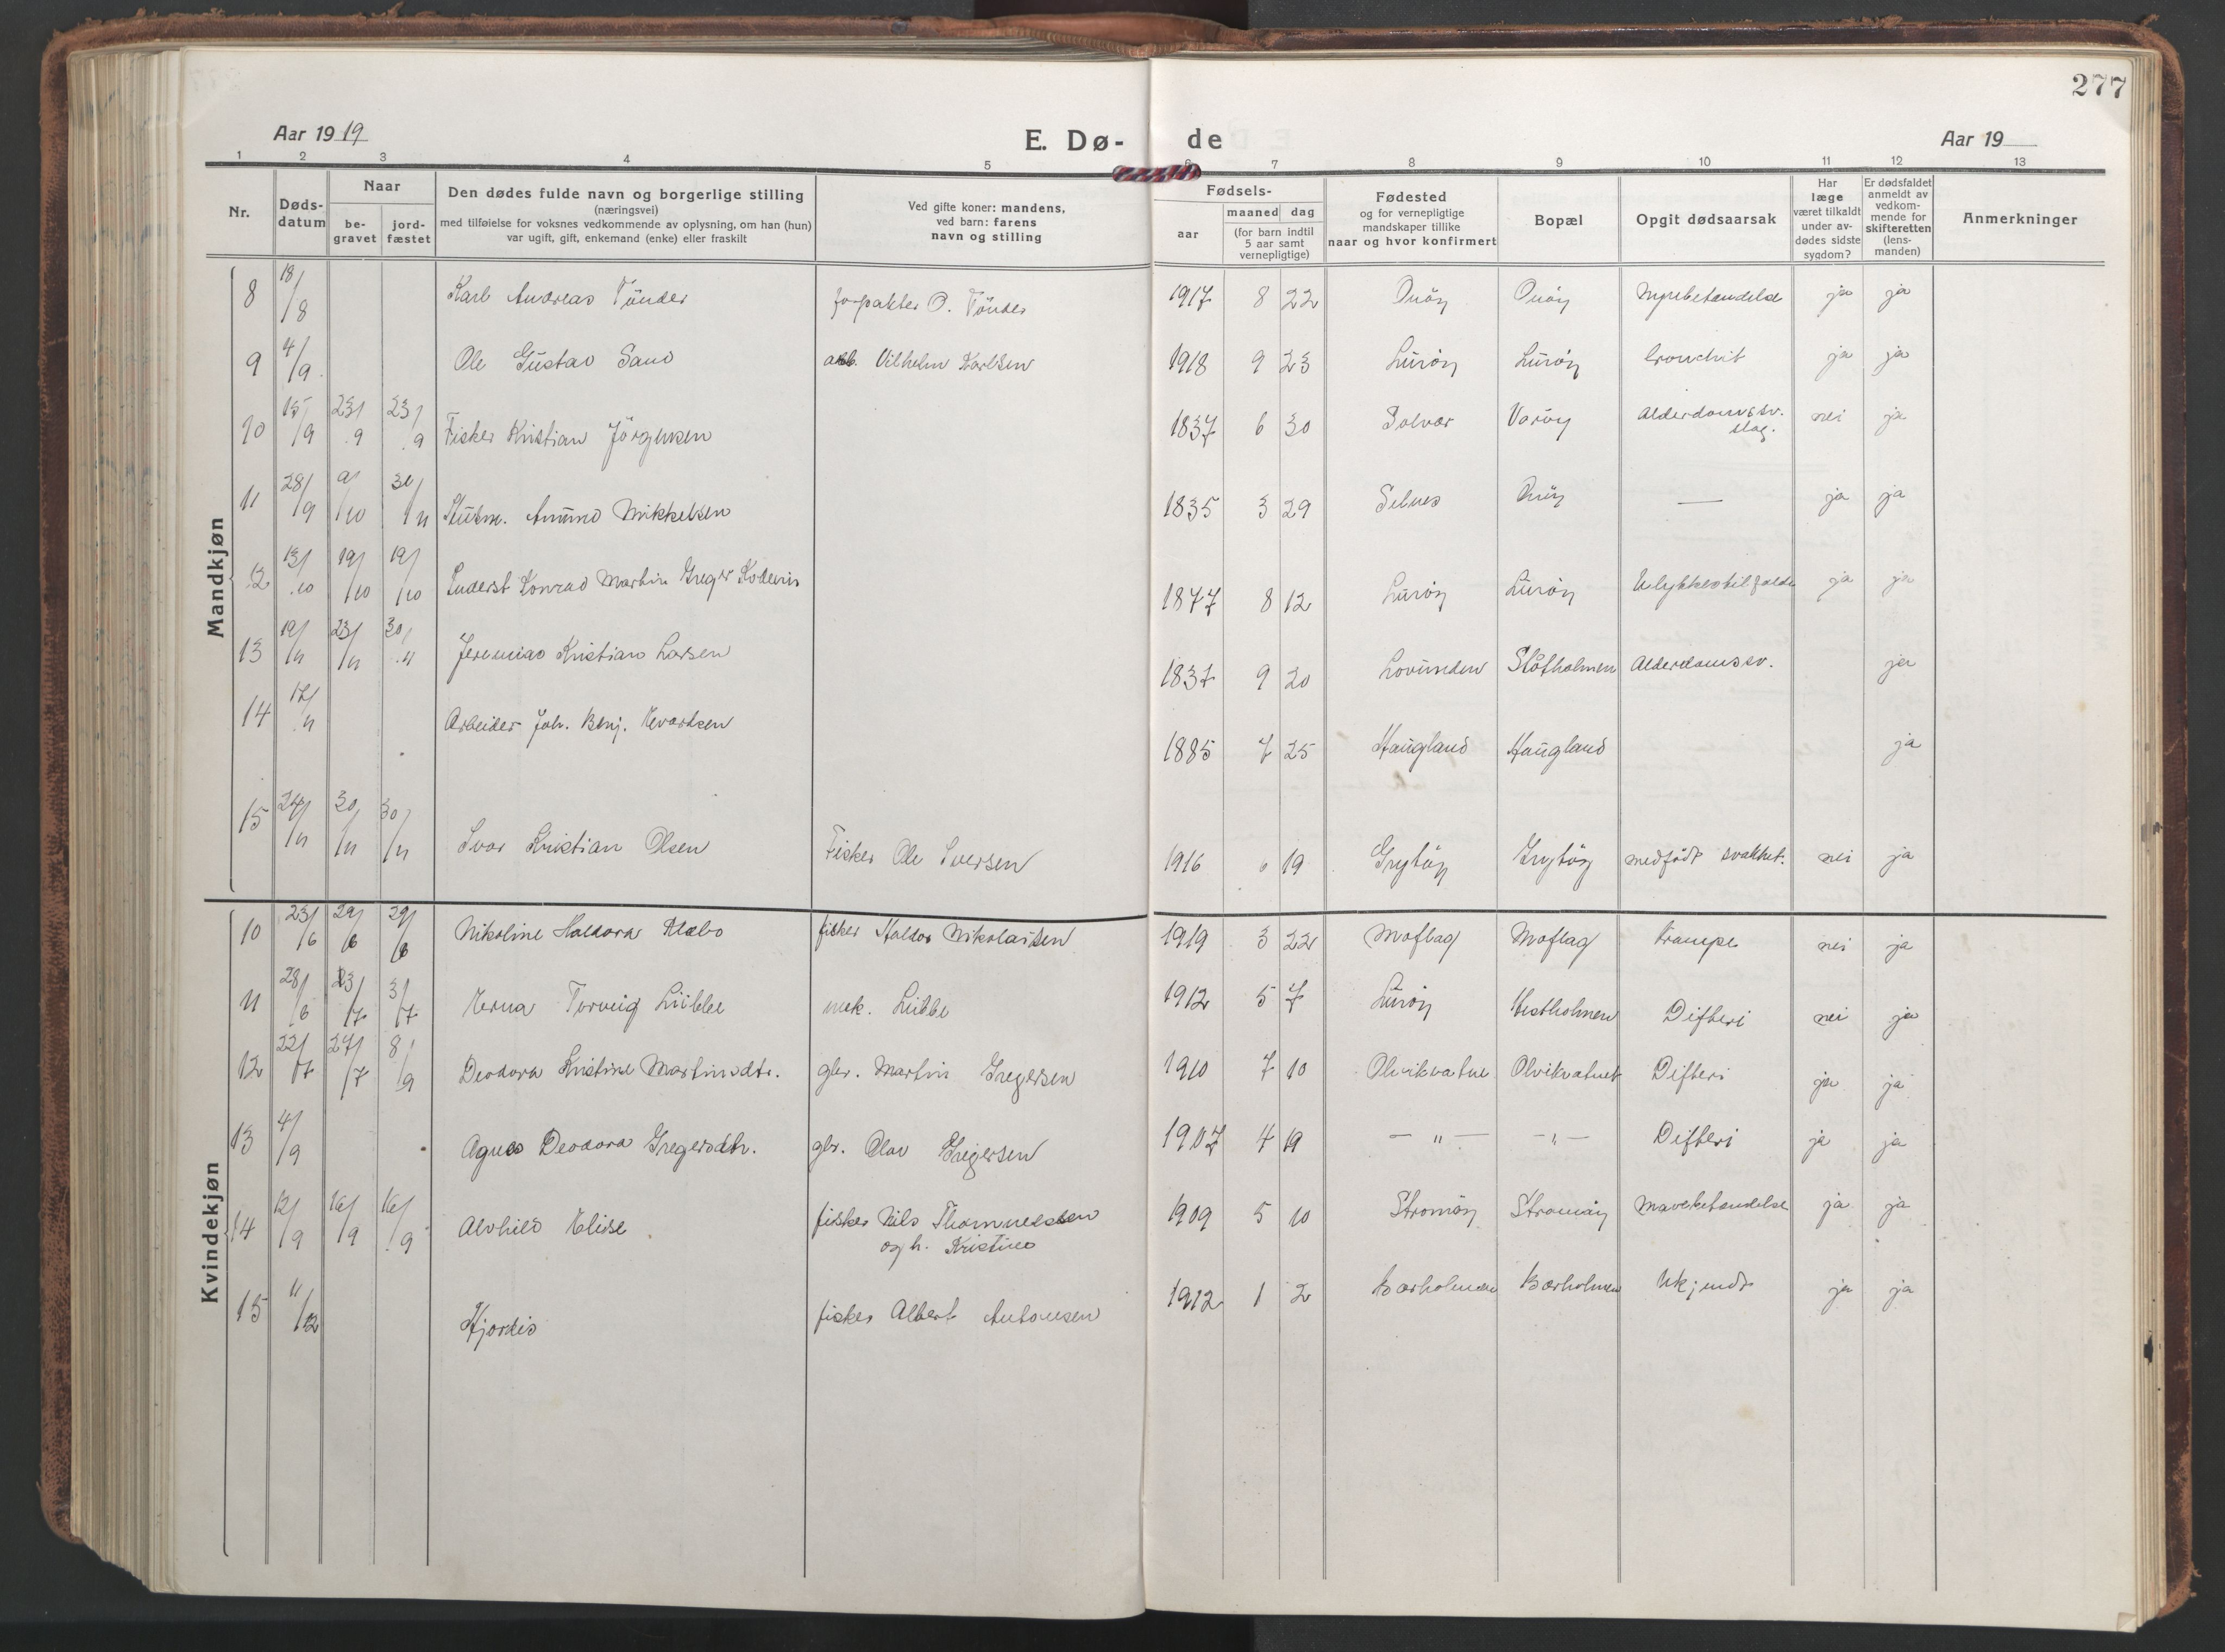 277
Aar 1919
E. Dø-
de
Aar 19
1 2 3 4 5 6 7 8 9 10 11 12 13
Nr.
Døds-
datum
Naar
be-
gravet
jord-
fæstet
Den dødes fulde navn og borgerlige stilling
(næringsvei)
med tilføielse for voksnes vedkommende av oplysning, om han (hun)
var ugift, gift, enkemand (enke) eller fraskilt
Ved gifte koner: mandens,
ved barn: farens
navn og stilling
Fødsels-
aar
maaned dag
(for barn indtil
5 aar samt
vernepligtige)
Fødested
og for vernepligtige
mandskaper tillike
naar og hvor konfirmert
Bopæl
Opgit dødsaarsak
Har
læge
været tilkaldt
under av-
dødes sidste
sygdom?
Er dødsfaldet
anmeldt av
vedkom-
mende for
skifteretten
(lens-
manden)
Anmerkninger
Mandkjøn
8 18/8 Karl Andreas Tönder forpakter O. Tönder 1917 8 22 Onöy Onöy ja ja
9 4/9 Ole Gustav Sand arb. Vilhelm Karlsen 1918 9 23 Luröy Luröy bronchit ja ja
10 15/9 23/9 23/9 Fisker Kristian Jörgensen 1837 6 30 Solvær Varöy Alderdomssv.
slag. nei ja
11 28/9 9/10 30/11 Husm. Amund Mikkelsen 1835 3 29 Selnes Onöy — ja ja
12 13/10 19/10 19/10 Inderst Konrad Martin Greger 1877 8 12 Luröy Luröy Ulykkestilfælde ja ja
13 19/11 23/11 30/11 Jeremias Kristian Larsen 1837 9 20 Lovunden Slotholmen Alderdomssv. ja
14 12/11 Arbeider Joh. Benj. Evartsen 1885 7 25 Haugland Haugland ja
15 24/11 30/11 30/11 Ivar Kristian Olsen Fisker Ole Iversen 1916 6 19 Grytöy Grytöy medfödt svakhet. nei ja
Kvindekjøn
10 23/6 29/6 29/6 Nikoline Haldora fisker Haldor Nikolaisen 1919 3 22 Moflag Moflag Krampe nei ja
11 28/6 3/7 3/7 Erna Torveig Lübbe mek. Lübbe 1912 5 7 Luröy Hestholmen Difteri nei ja
12 22/7 27/7 8/9 Deodora Kristine Martinsdtr. gbr. Martin Gregersen 1910 7 10 Olvikvatne Olvikvatnet Difteri ja ja
13 4/9 Agnes Deodora Gregersdtr. gbr. Olav Gregersen 1907 4 19 — " — — " — Difteri ja ja
14 12/9 16/9 16/9 Alvhild Elise fisker Nils Thomassen
og h. Kristine 1909 5 10 Stromöy Stromöy Mavebetændelse ja ja
15 11/12 Hjordis fisker Albert Antonsen 1912 1 2 Barholmen Barholmen Ukjendt ja ja